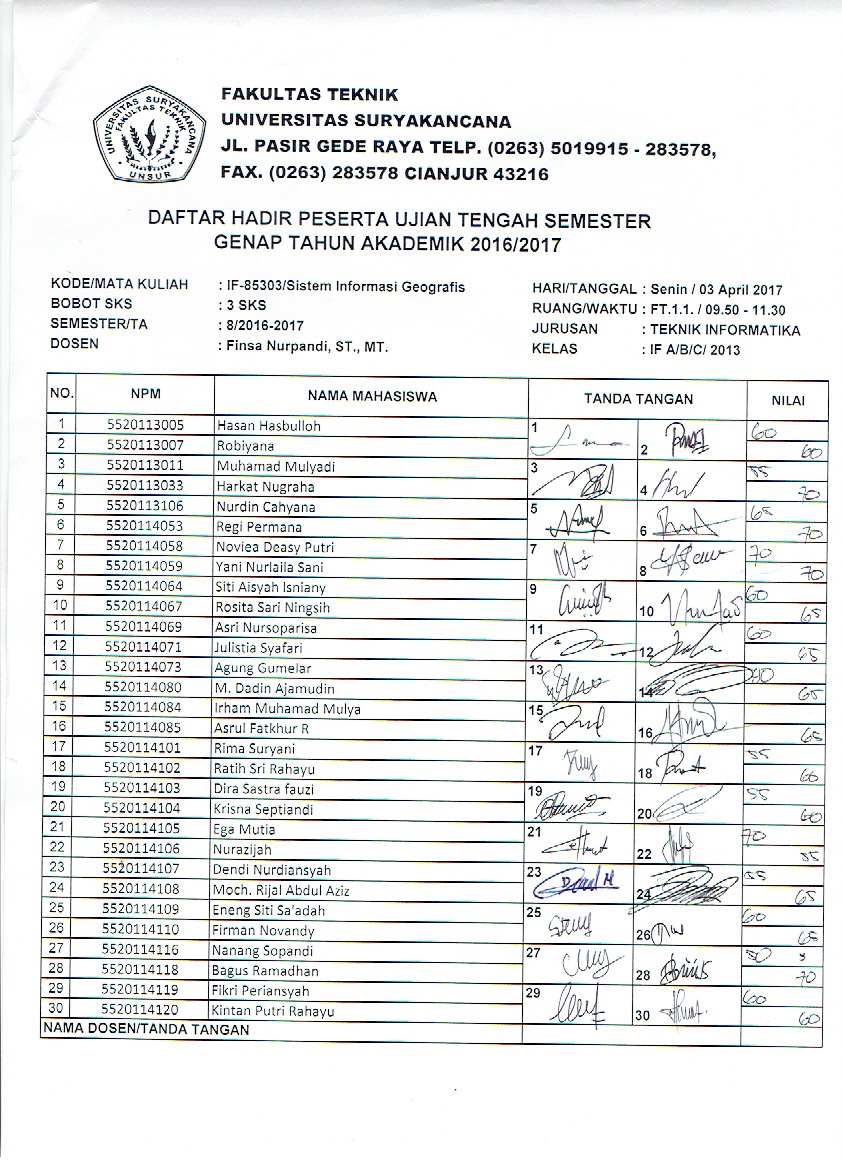 UNIVERSITAS SURYAKANCANA
FAKULTAS TEKNIK
UNSUR
FAKULTAS TEKNIK
UNIVERSITAS SURYAKANCANA
JL. PASIR GEDE RAYA TELP. (0263) 5019915 - 283578,
FAX. (0263) 283578 CIANJUR 43216
DAFTAR HADIR PESERTA UJIAN TENGAH SEMESTER
GENAP TAHUN AKADEMIK 2016/2017
KODE/MATA KULIAH : IF-85303/Sistem Informasi Geografis
BOBOT SKS : 3 SKS
SEMESTER/TA : 8/2016-2017
DOSEN : Finsa Nurpandi, ST., MT.
HARI/TANGGAL : Senin / 03 April 2017
RUANG/WAKTU : FT.1.1. / 09.50 - 11.30
JURUSAN : TEKNIK INFORMATIKA
KELAS : IF A/B/C/ 2013
NO. NPM NAMA MAHASISWA TANDA TANGAN NILAI
1 5520113005 Hasan Hasbulloh 1 60
2 5520113007 Robiyana 2 60
3 5520113011 Muhamad Mulyadi 3
4 5520113033 Harkat Nugraha 4 70
5 5520113106 Nurdin Cahyana 5 65
6 5520114053 Regi Permana 6 70
7 5520114058 Noviea Deasy Putri 7 70
8 5520114059 Yani Nurlaila Sani 8 70
9 5520114064 Siti Aisyah Isniany 9 60
10 5520114067 Rosita Sari Ningsih 10 65
11 5520114069 Asri Nursoparisa 11 60
12 5520114071 Julistia Syafari 12 65
13 5520114073 Agung Gumelar 13
14 5520114080 M. Dadin Ajamudin 14 65
15 5520114084 Irham Muhamad Mulya 15
16 5520114085 Asrul Fatkhur R 16 65
17 5520114101 Rima Suryani 17 55
18 5520114102 Ratih Sri Rahayu 18 60
19 5520114103 Dira Sastra fauzi 19 55
20 5520114104 Krisna Septiandi 20 60
21 5520114105 Ega Mutia 21 70
22 5520114106 Nurazijah 22
23 5520114107 Dendi Nurdiansyah 23 55
24 5520114108 Moch. Rijal Abdul Aziz 24 65
25 5520114109 Eneng Siti Sa'adah 25 60
26 5520114110 Firman Novandy 26 65
27 5520114116 Nanang Sopandi 27
28 5520114118 Bagus Ramadhan 28 70
29 5520114119 Fikri Periansyah 29 60
30 5520114120 Kintan Putri Rahayu 30 60
NAMA DOSEN/TANDA TANGAN